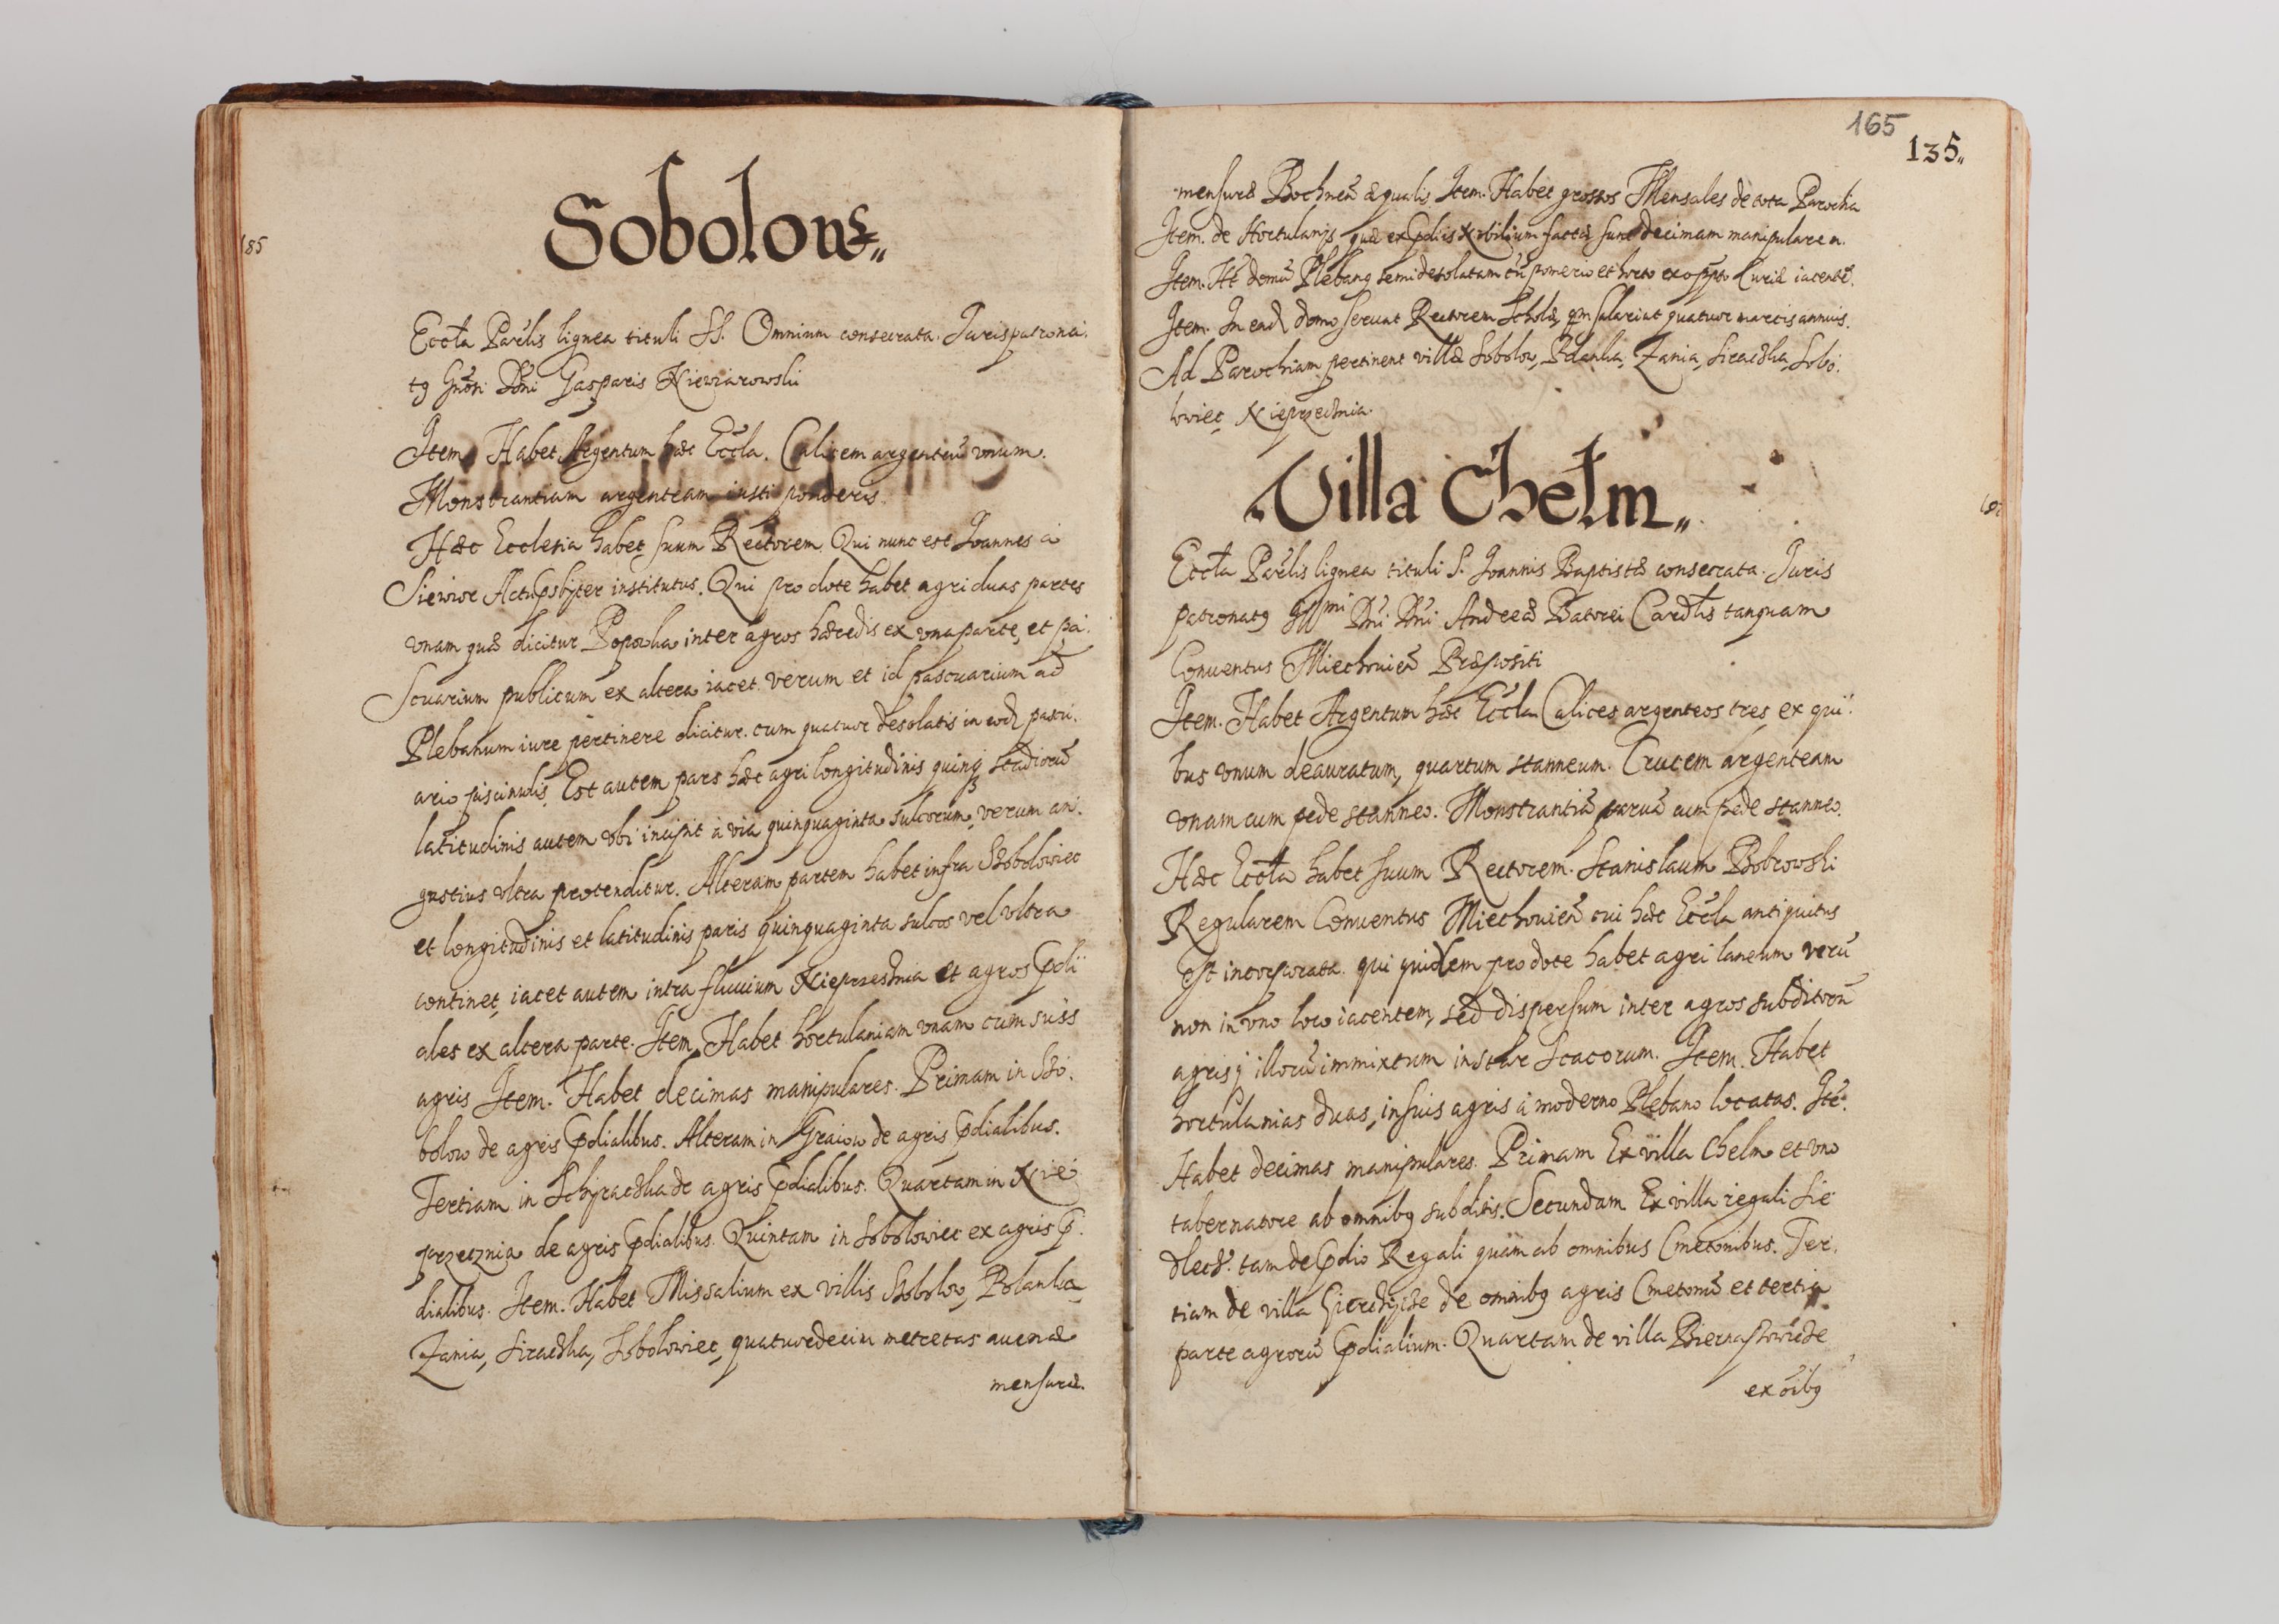 Sobolow
185
Eccła Parlis lignea tituli SS. Omnium consecrata. Jurispatrona
tꝯ Gnosi Dni Gasparis Niewiarowski
Item Habet Argentum hæc Eccla. Calicem argenteū vnum.
Monstrantiam argenteam iusti ponderis.
Hæc Ecclesia habet suum Rectorem. Qui nunc est Joannes à
Siewior institutus. Qui pro dote habet agri duas partes
vnam quæ dicitur inter agros hæredis ex vna parte, et pa
scuarium publicum ex altera iacet. verum et id pascuarium ad
Plebanum iure pertinere dicitur. cum quatuor desolatis in eod pascu.
ario piscinulis. Est autem pars hæc agri longitudinis quinqꝫ stadiorū
latitudinis autem vbi incipit à via quinquaginta sulcorum, verum an
gustius vltra protenditur. Alteram partem habet infra Sobolowiec
et longitudinis et latitudinis paris quinquaginta sulcos vel vltra
continet, iacet autem intra fluuium Nieprzesznia et agros ꝓdii
ales ex altera parte. Item Habet hortulaniam vnam cum suis
agris Item. Habet decimas manipulares. Primam in So
bolow de agris ꝓdialibus. Alteram in Graiow de agris ꝓdialibus.
Tertiam in de agris ꝓdialibus. Quartam in Nie
przecznia de agris ꝓdialibus. Quintam in Sobolowiec ex agris ꝓ
dialibus. Item. Habet Missalium ex villis Sobolow, Polanka,
Zania, Siraczka, Sobolowiec, quatuordecim metretas auenæ
mensuræ.
165
135
mensuræ Bochnen æqualis, Item. Habet grossos Mensales de tota Parochia
Item. de Hortulanijs quæ ex ꝓdiis Nobilium factæ sunt decimam manipularem.
Item. Ht domū Plebanꝯ semidesolatam cū pomerio et horto ex oppto Curiæ iacente.
Item. In ead domo seruat Rectorem Scholæ, qm salariat quatuor marcis annuis.
Ad Parochiam pertinent villæ Sobolow, Polanka, Zania, Siraczka, Sobo
lowiec, Nieprzecznia.
Villa Chełm
Eccła Parlis lignea tituli S. Joannis Baptistæ consecrata. Juris
patronatꝯ Illmi Dni. Dni Andreæ Batorei Cardlis tanquam
Conuentus Miechouien Præpositi
Item. Habet Argentum hæc Eccla Calices argenteos tres, ex qui
bus vnum deauratum, quartum stanneum. Crucem argenteam
vnam cum pede stanneo. Monstrantiā paruā cum pede stanneo.
Hæc Eccła habet suum Rectorem. Stanislaum Bobrowski
Regularem Conuentus Miechouien cui hæc Eccla antiquitus
est incorporata. qui quidem pro dote habet agri laneum verū
non in vno loco iacentem, sed dispersum inter agros subditorū
agrisqꝫ illorū immixtum instar scacorum. Item. Habet
hortulanias duas, in suis agris à moderno Plebano locatas. Itē.
Habet decimas manipulares. Primam Ex villa Chelm et vno
tabernatore ab omnibꝯ subditis. Secundam Ex villa regali Sie
dlecz. tam de ꝓdio Regali quam ab omnibus Cmetonibus. Ter
tiam de villa de omnibꝯ agris Cmetonū et tertia
parte agrorū ꝓdialium. Quartam de villa
ex oibꝯ